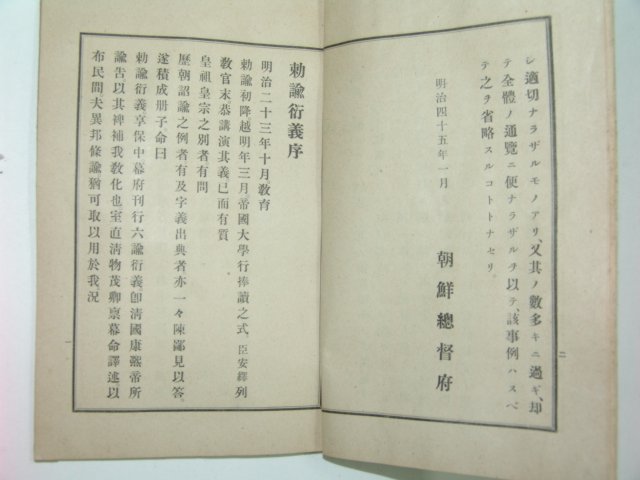 シ適切ナラザルモノアリ、又其ノ數多キニ過ギ、却
テ全體ノ通覽ニ便ナラザルヲ以テ、該事例ハスベ
テ之ヲ省略スルコトトナセリ。
明治四十五年一月
朝鮮總督府
二
勅諭衍義序
明治二十三年十月教育
勅諭初降越明年三月帝國大學行捧讀之式、臣安繹列
教官末恭講演其義已而有質
皇祖皇宗之別者有問
歷朝詔諭之例者有及字義出典者亦一々陳鄙見以答
遂積成册子命曰
勅諭衍義享保中幕府刊行六諭衍義、卽清國康熙帝所
諭告以其裨補我敎化也室直清物茂卿稟幕命譯述以
布民間夫異邦條諭猶可取以用於我、況
一